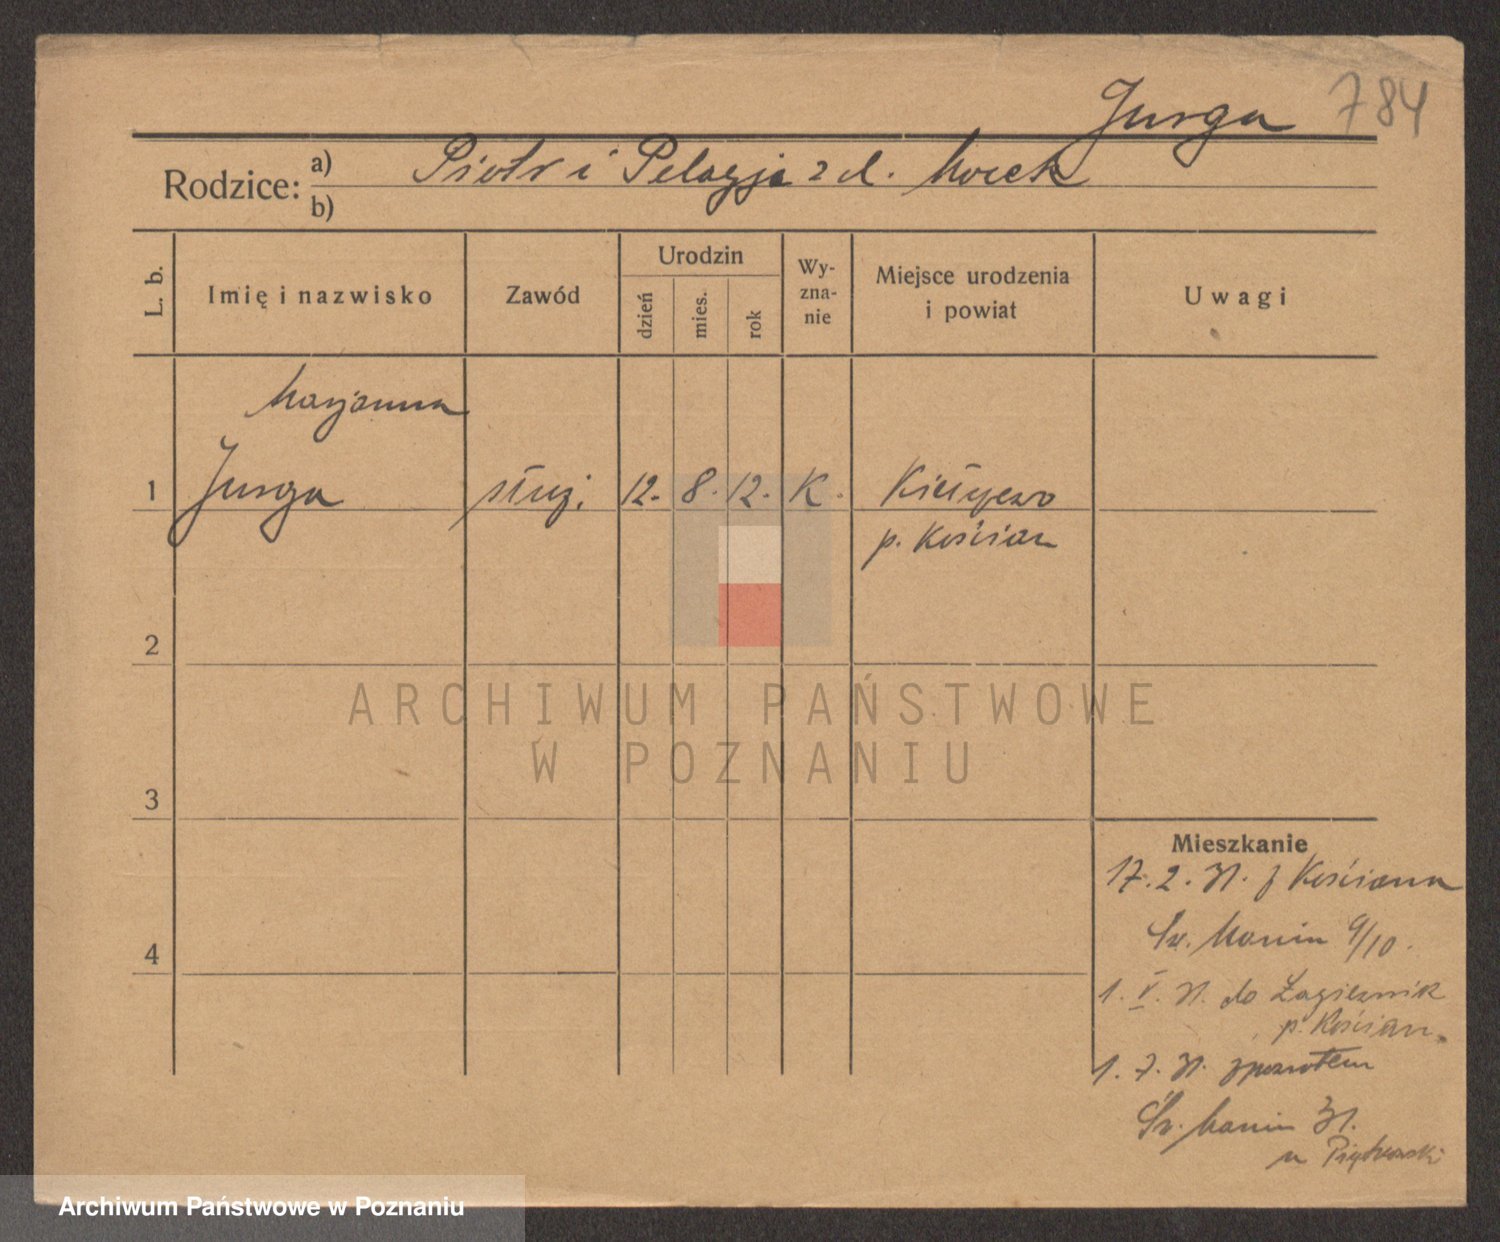 Jurga 784
Rodzice: a) Piotr i Pelagja z d.
b)
L. b. Imię i nazwisko Zawód Urodzin dzień mies. rok Wy-zna-nie Miejsce urodzenia i powiat Uwagi
Marjanna
1 Jurga służ. 12. 8. 12. K. Kiełczewo
p. Kościan
2
3
4
Mieszkanie
17.2.31. z Kościana
Św. Marcin 9/10.
1. V. 31. do
p. Kościan.
1.7.31. zpowrotem
Św. Marcin 31.
u
ARCHIWUM PAŃSTWOWE
W POZNANIU
Archiwum Państwowe w Poznaniu